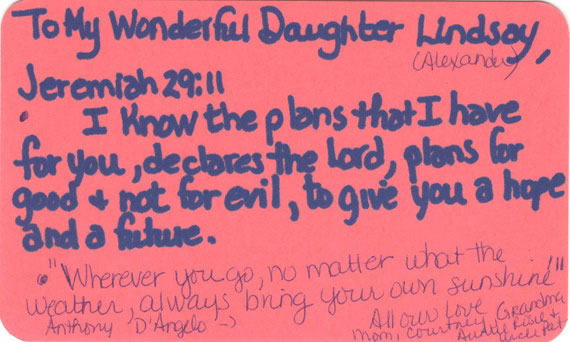 To My Wonderful Daughter Lindsay,
(Alexander)
Jeremiah 29:11
• I know the plans that I have
for you, declares the Lord, plans for
good & not for evil, to give you a hope
and a future.
• "Wherever you go, no matter what the
weather, always bring your own sunshine"
Anthony D'Angelo -)
All our love Grandma
Mom, Courtney, Auntie Rosie &
Uncle Pat